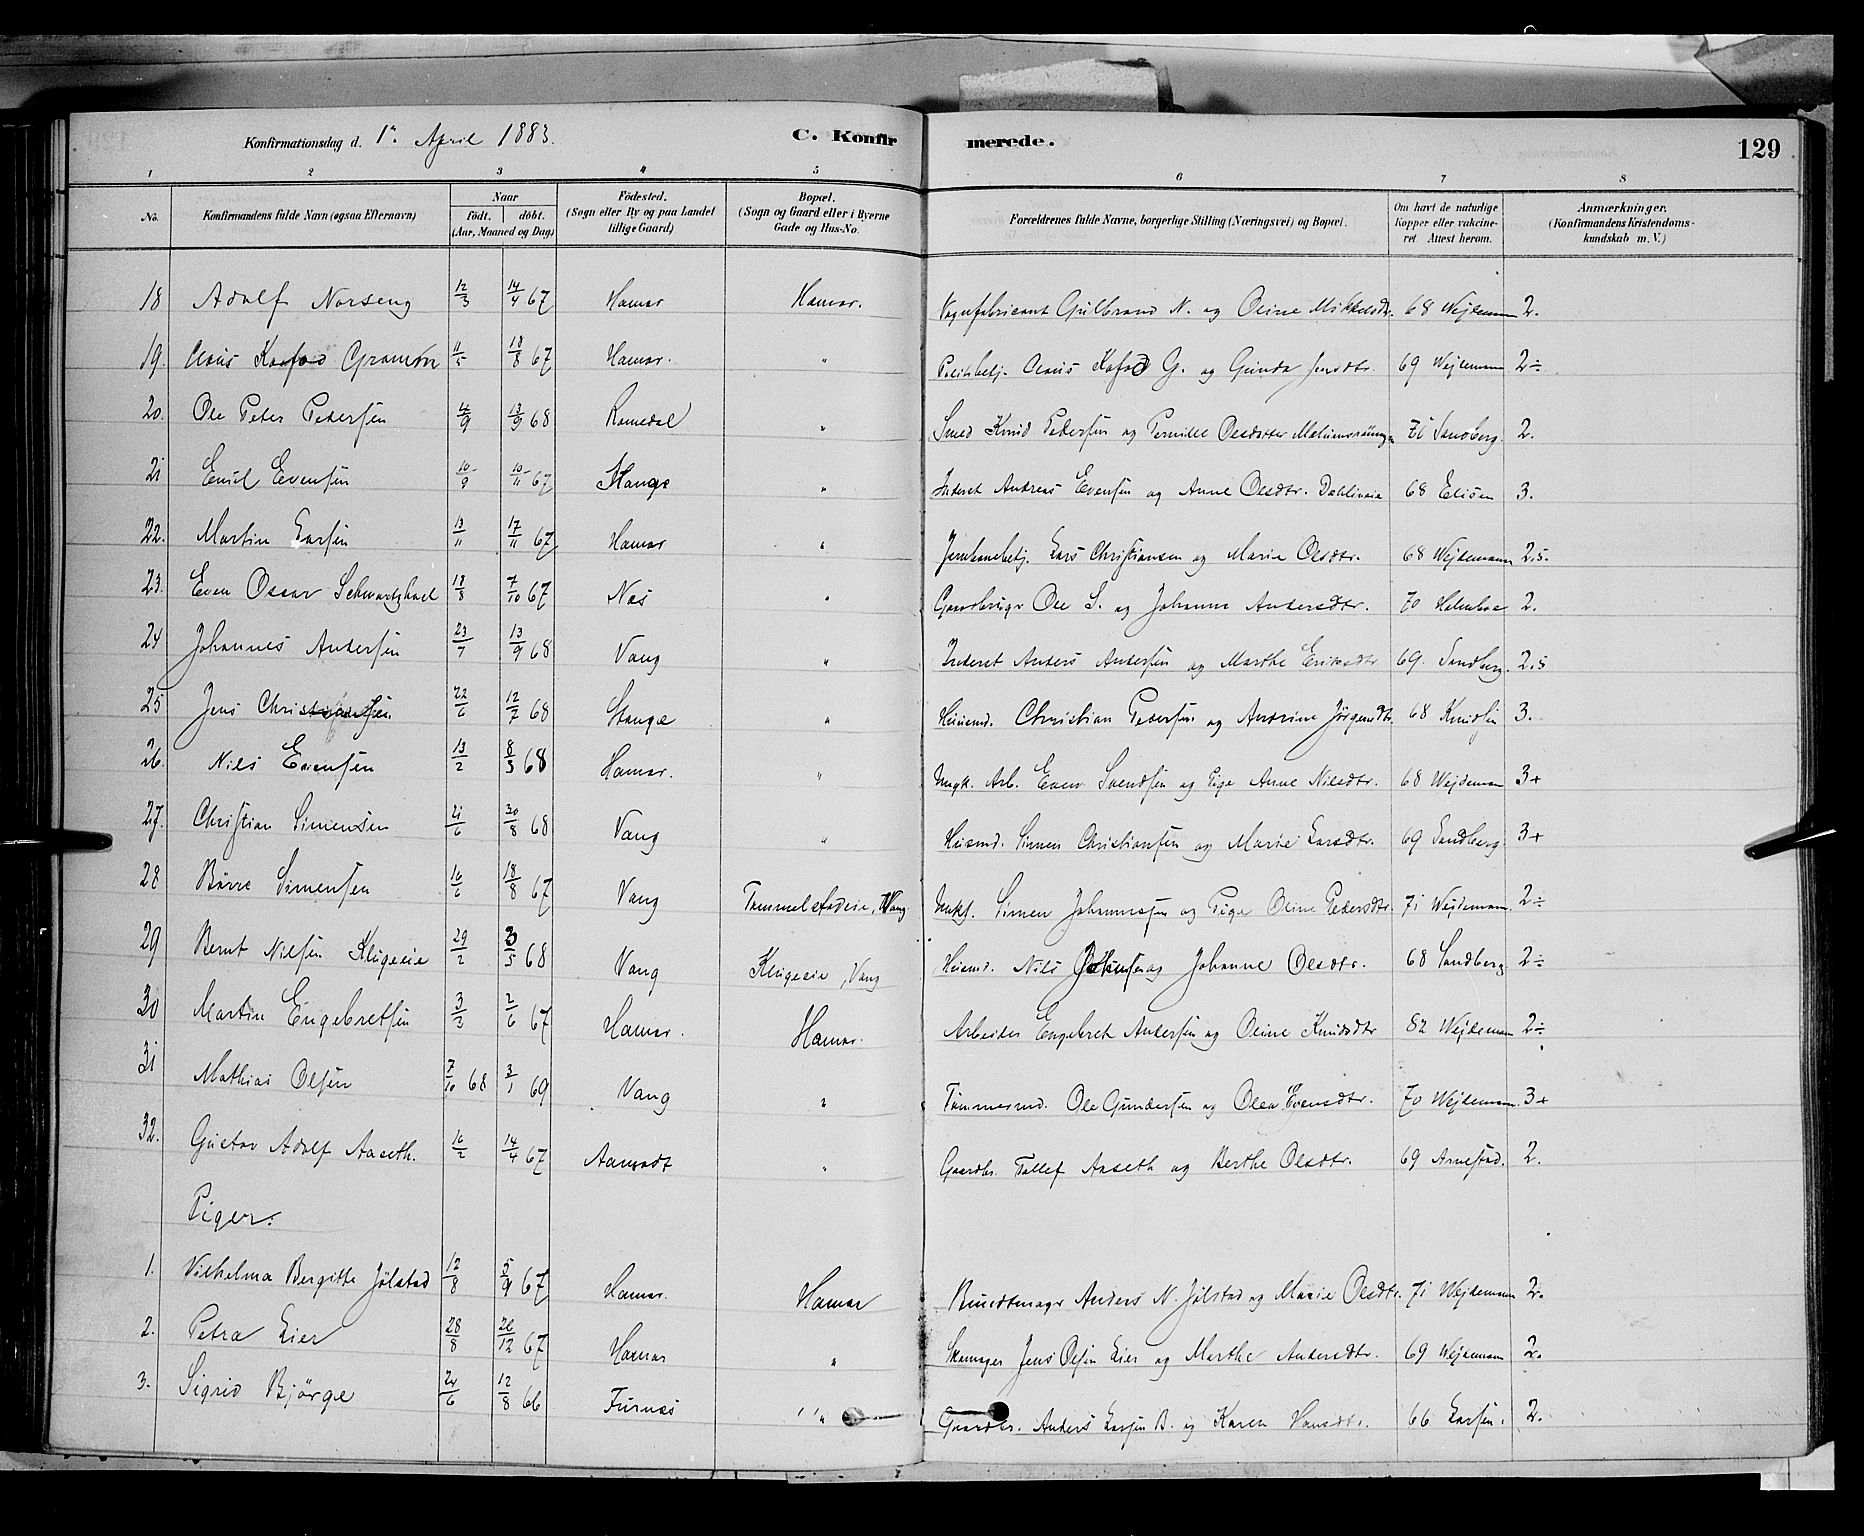 Konfirmationsdag d. 1ste April 1883. C. Konfirmerede. 129
1 2 3 4 5 6 7 8
No. Konfirmandens fulde Navn (ogsaa Efternavn) Naar födt. döbt. (Aar, Maaned og Dag) Födested. (Sogn eller By og paa Landet tillige Gaard) Bopæl. (Sogn og Gaard eller i Byerne Gade og Hus-No. Forældrenes fulde Navne, borgerlige Stilling (Næringsvei) og Bopæl. Om havt de naturlige Kopper eller vakcineret. Attest herom. Anmærkninger. (Konfirmandens Kristendomskundskab m. V.)
18 Adolf Norseng 12/3 14/4 67 Hamar Hamar. Vognfabricant Gulbrand N. og Oline Mikkelsdtr. 68 Wejdemann 2.
19. Claus Kofod Gramm 11/5 18/8 67 Hamar. " Politibetj. Claus Kofod G. og Gunda Jensdtr. 69 Wejdemann 2÷
20. Ole Peter Pedersen 4/9 13/9 68 Romedal " Smed Knud Pedersen og Pernille Olsdatter 71 Sandberg. 2.
21 Emil Evensen 10/9 10/11 67 Stange " Inderst Andreas Evensen og Anne Olsdtr. 68 Elisen 3.
22. Martin Larsen 13/11 17/11 67 Hamar " Jernbanebetj. Lars Christiansen og Marie Olsdtr. 68 Wejdemann 2.5.
23. Even Oscar 18/8 7/10 67 Nes " Gaardbruger Ole S. og Johanne Andersdtr. 70 Holmboe 2.
24 Johannes Andersen 23/7 13/9 68 Vang " Inderst Anders Andersen og Marthe Eriksdtr 69. Sandberg. 2.5
25 Jens Christiansen 22/6 12/7 68 Stange " Huusmd. Christian Pedersen og Andrine Jörgensdtr. 68 Knudsen 3.
26. Nils Evensen 13/2 8/3 68 Hamar. " Ungk. Arb. Even Svendsen og Pige Anne Nilsdtr. 68 Wejdeman 3+
27. Christian Simensen 21/6 30/8 68 Vang " Huusmd. Simen Christiansen og Marie Larsdtr. 69 Sandberg. 3+
28 Börre Simensen 16/6 18/8 67 Vang Tommelstadeie, Vang Simen Johannesen og Pige Oline Pedersdtr. 71 Wejdemann. 2÷
29 Bernt Nilsen Kligeeie 29/2 3/5 68 Vang Kligeeie, Vang Huusmd. Nils Johansen og Johanne Olsdtr. 68 Sandberg 2÷
30 Martin Engebretsen 3/3 2/6 67 Hamar. Hamar. Arbeider Engebret Andersen og Oline Knudsdtr 82 Wejdemann 2÷
31 Mathias Olsen 7/10 68 3/1 69 Vang " Tömmermd. Ole Gundersen og Olea Evensdtr. 70 Wejdemann. 3+
32. Gustav Adolf Aaseth. 16/2 14/4 67 Aamodt " Gaardbr. Tollef Aaseth og Berthe Olsdtr. 69 Arnestad. 2.
Piger.
1. Vilhelma Bergitte Jölstad 12/8 5/9 67 Hamar. Hamar Bundtmager Anders N. Jölstad og Marie Olsdtr. 71 Wejdemann 2.
2. Petra Lier 28/8 26/12 67 Hamar " Skomager Jens Olsen Lier og Marthe Andersdtr. 69 Wejdemann 2.
3. Sigrid Bjørge 24/6 12/8 66 Furnes " Gaardbr. Anders Larsen B. og Karen Hansdtr. 66 Larsen. 2.